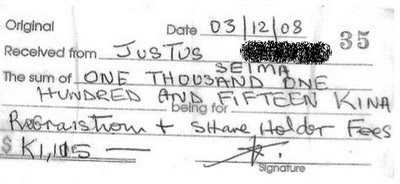 Original Date 03/12/08
Received from JUSTUS 35
SELMA
The sum of ONE THOUSAND ONE
HUNDRED AND FIFTEEN KINA
being for
Regraistrom + Share Holder Fees
$ K1,105 —
Signature